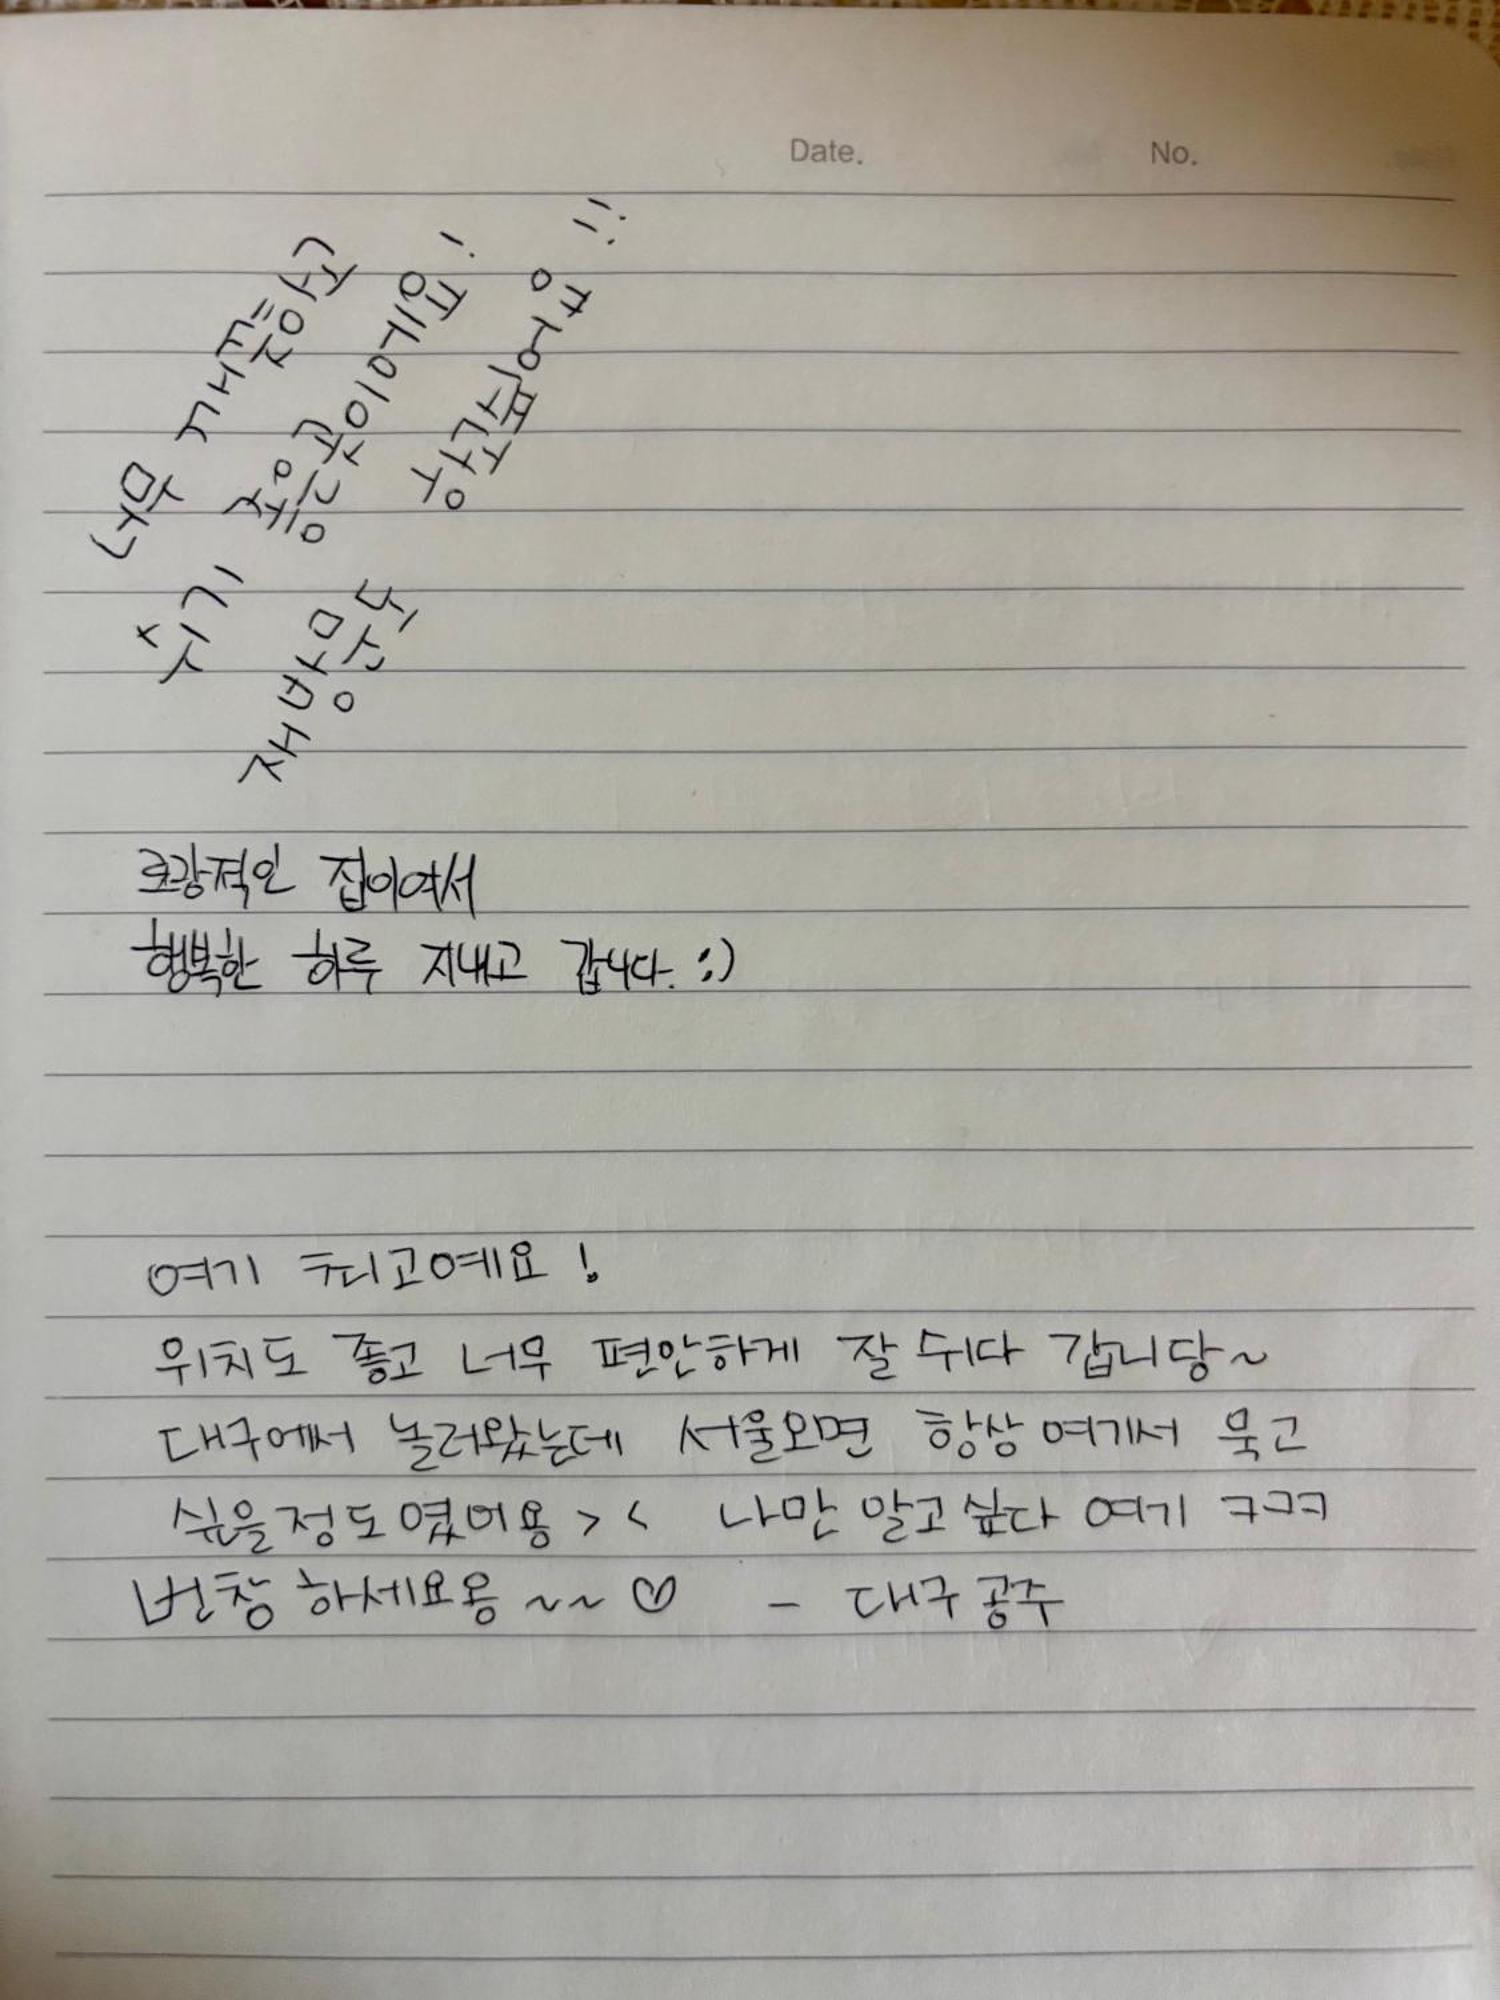 Date. No.
너무 깨끗하고
쉬기 좋은 공간이에요!
재방문도 하고싶어용!!
로광적인 집이여서
행복한 하루 지내고 갑니다. :)
여기 최고예요!
위치도 좋고 너무 편안하게 잘 쉬다 갑니당~
대구에서 놀러왔는데 서울오면 항상 여기서 묵고
싶을정도였어용 > < 나만 알고싶다 여기 ㅋㅋㅋ
번창하세요옹~~♡ - 대구공주